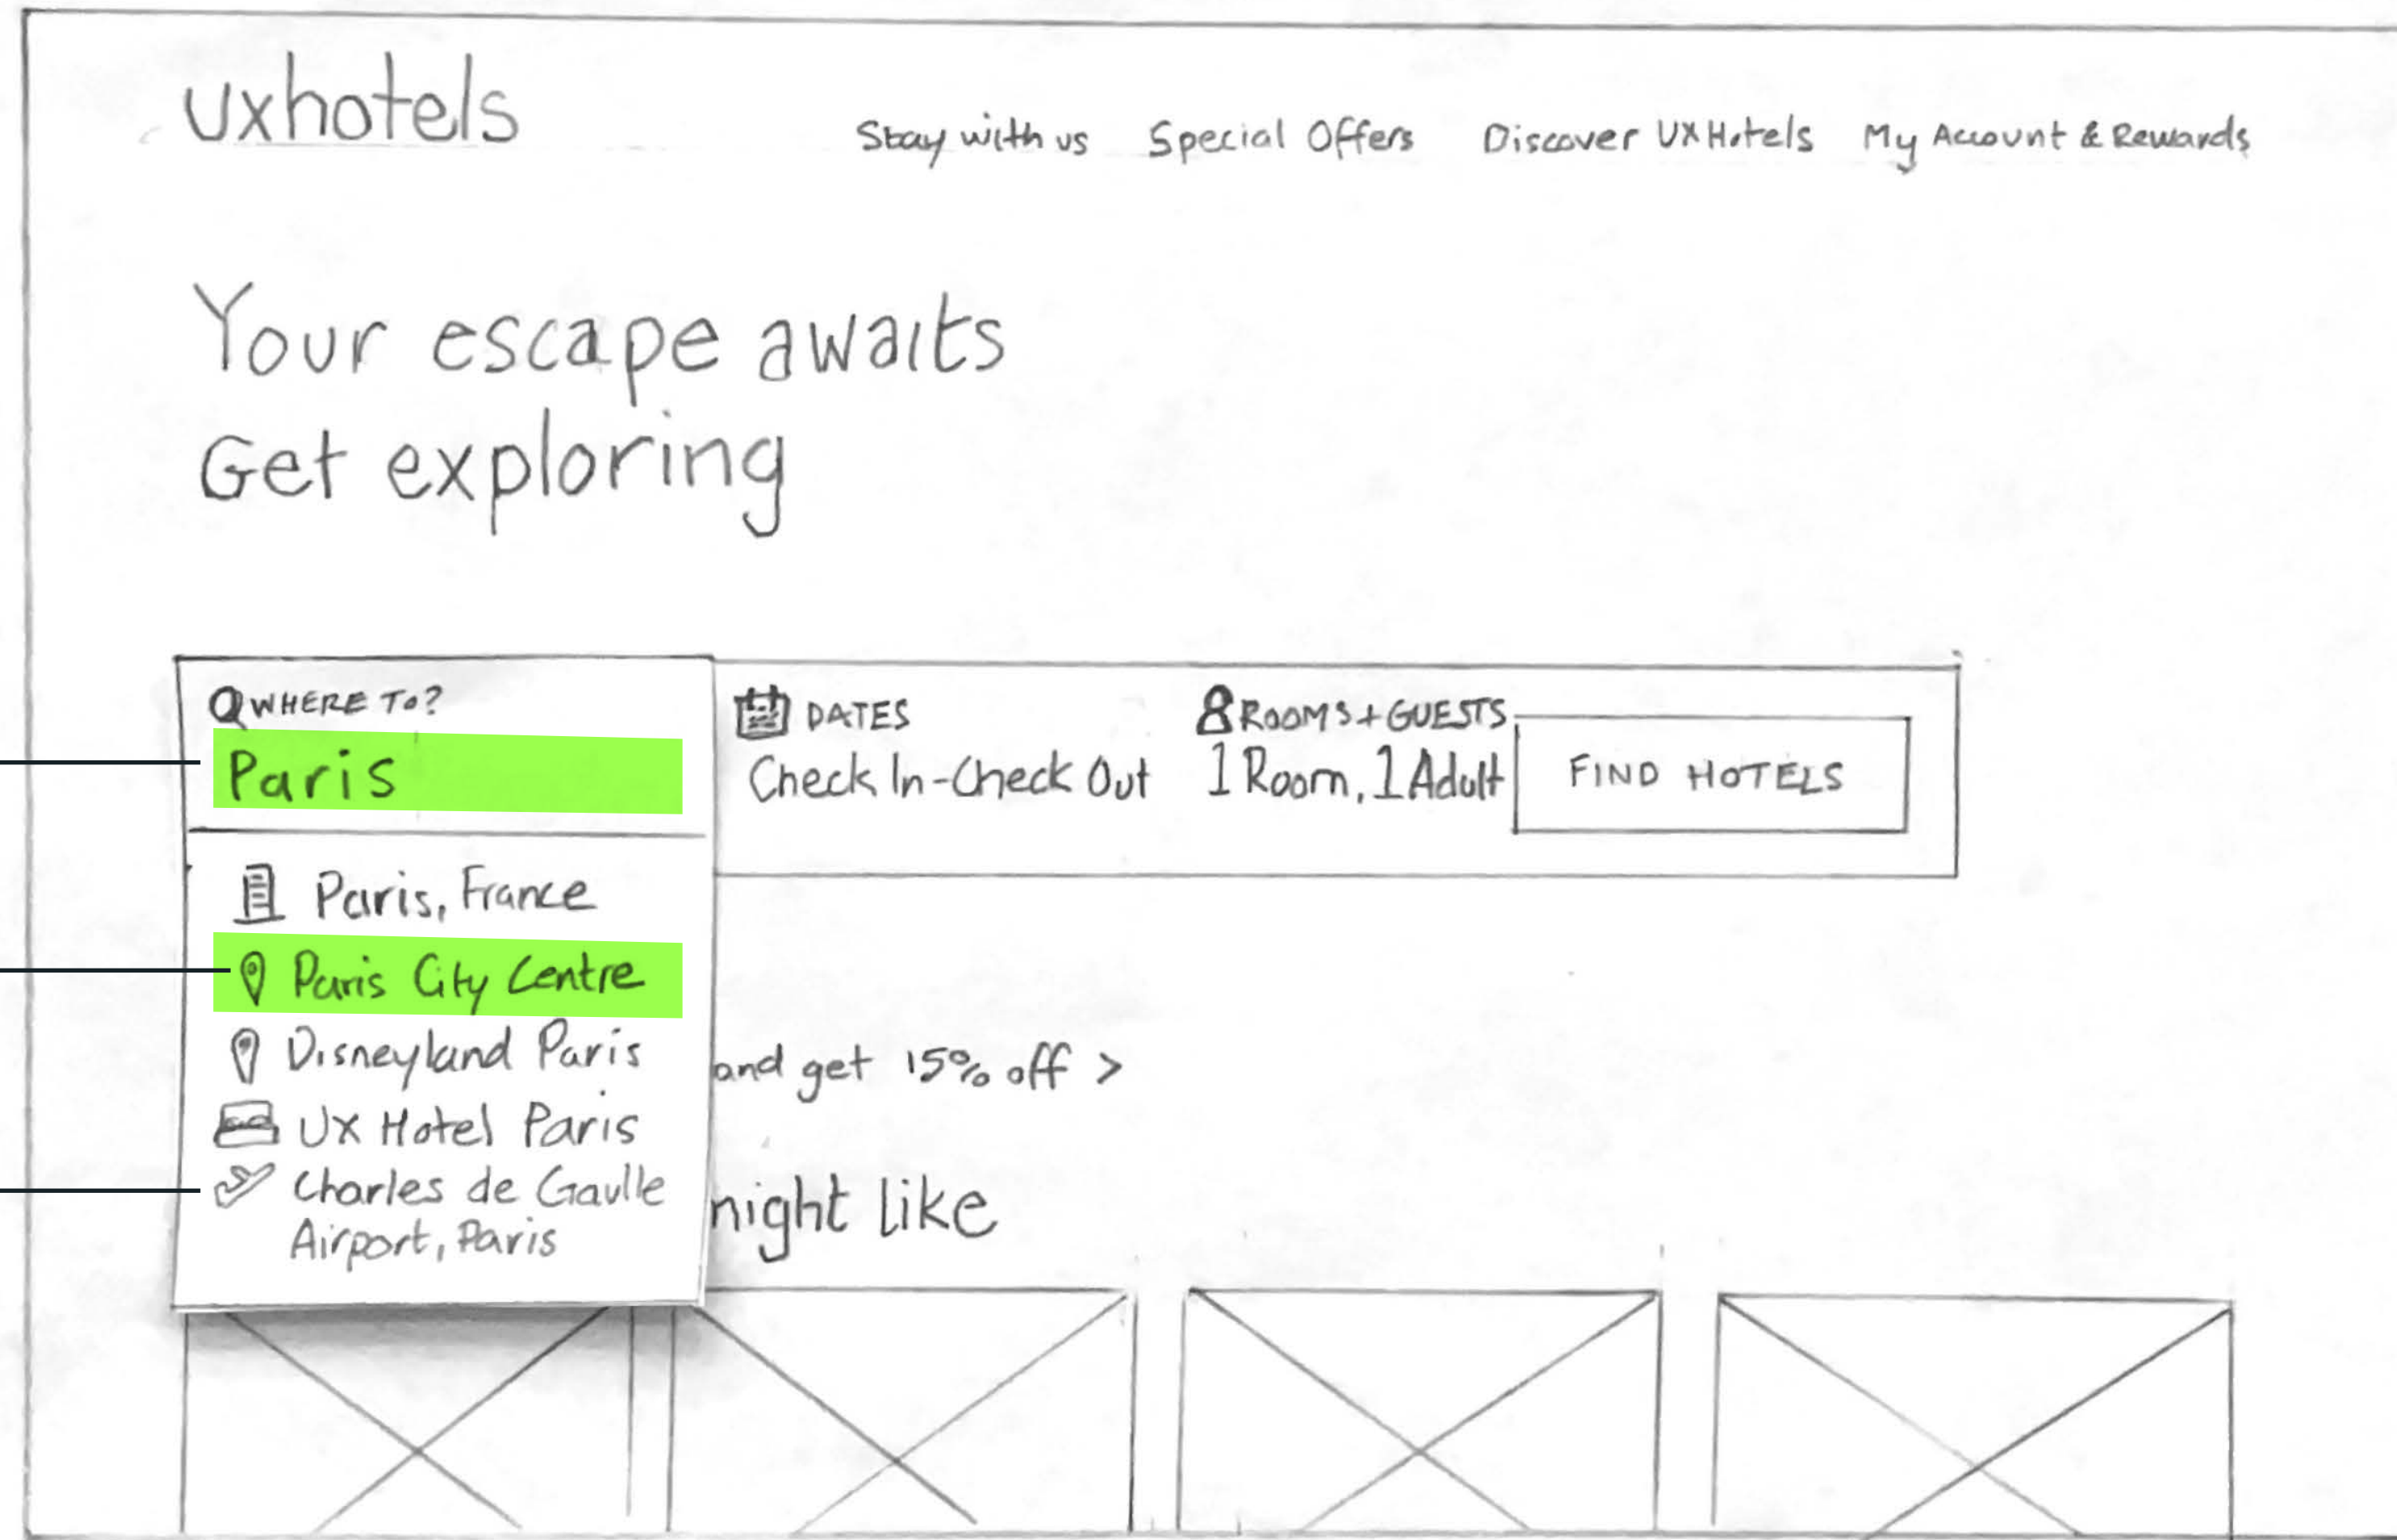 uxhotels
Stay with us Special Offers Discover UX Hotels My Account & Rewards
Your escape awaits
Get exploring
WHERE TO?
Paris
DATES
Check In-Check Out
ROOMS+GUESTS
1 Room, 1 Adult
FIND HOTELS
Paris, France
Paris City Centre
Disneyland Paris
UX Hotel Paris
Charles de Gaulle
Airport, Paris
and get 15% off >
might like